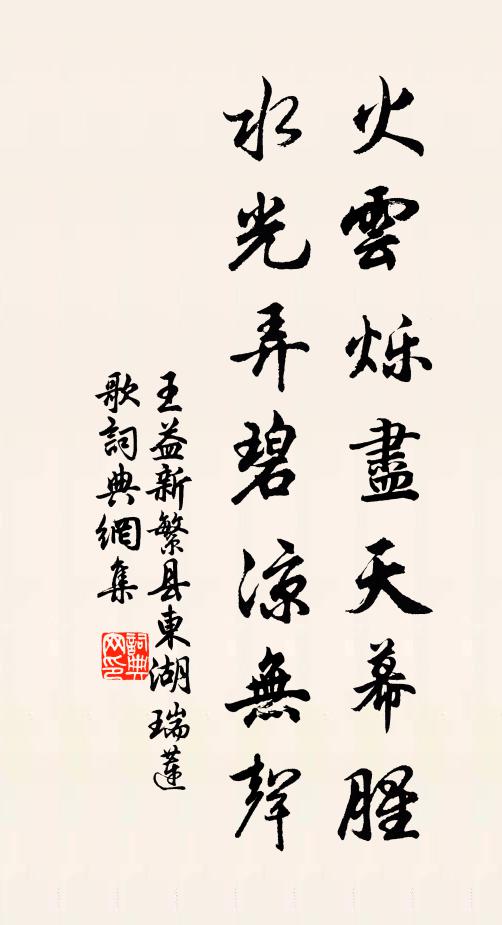 火雲烁盡天幕腥
水光弄碧凉無聲
王益新繁县東湖瑞蓮
歌詞典網集
詞典
网印